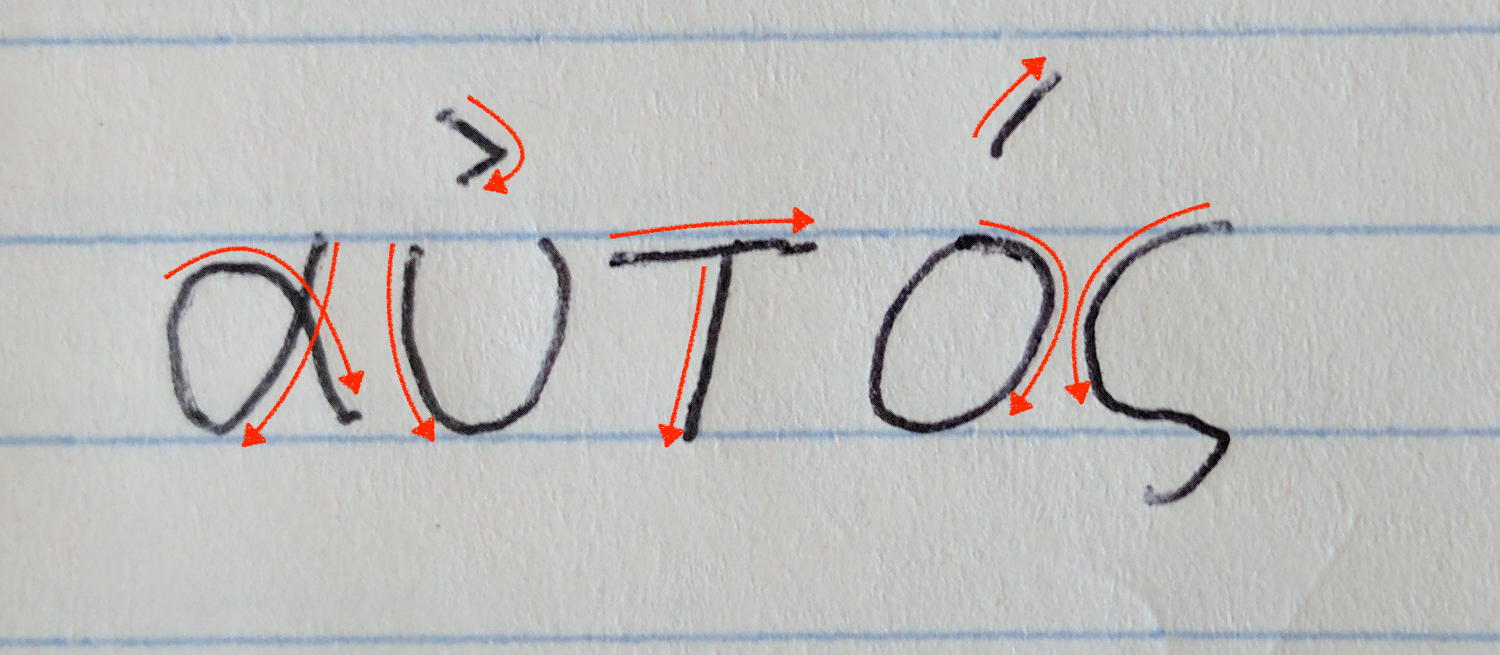 αὐτός